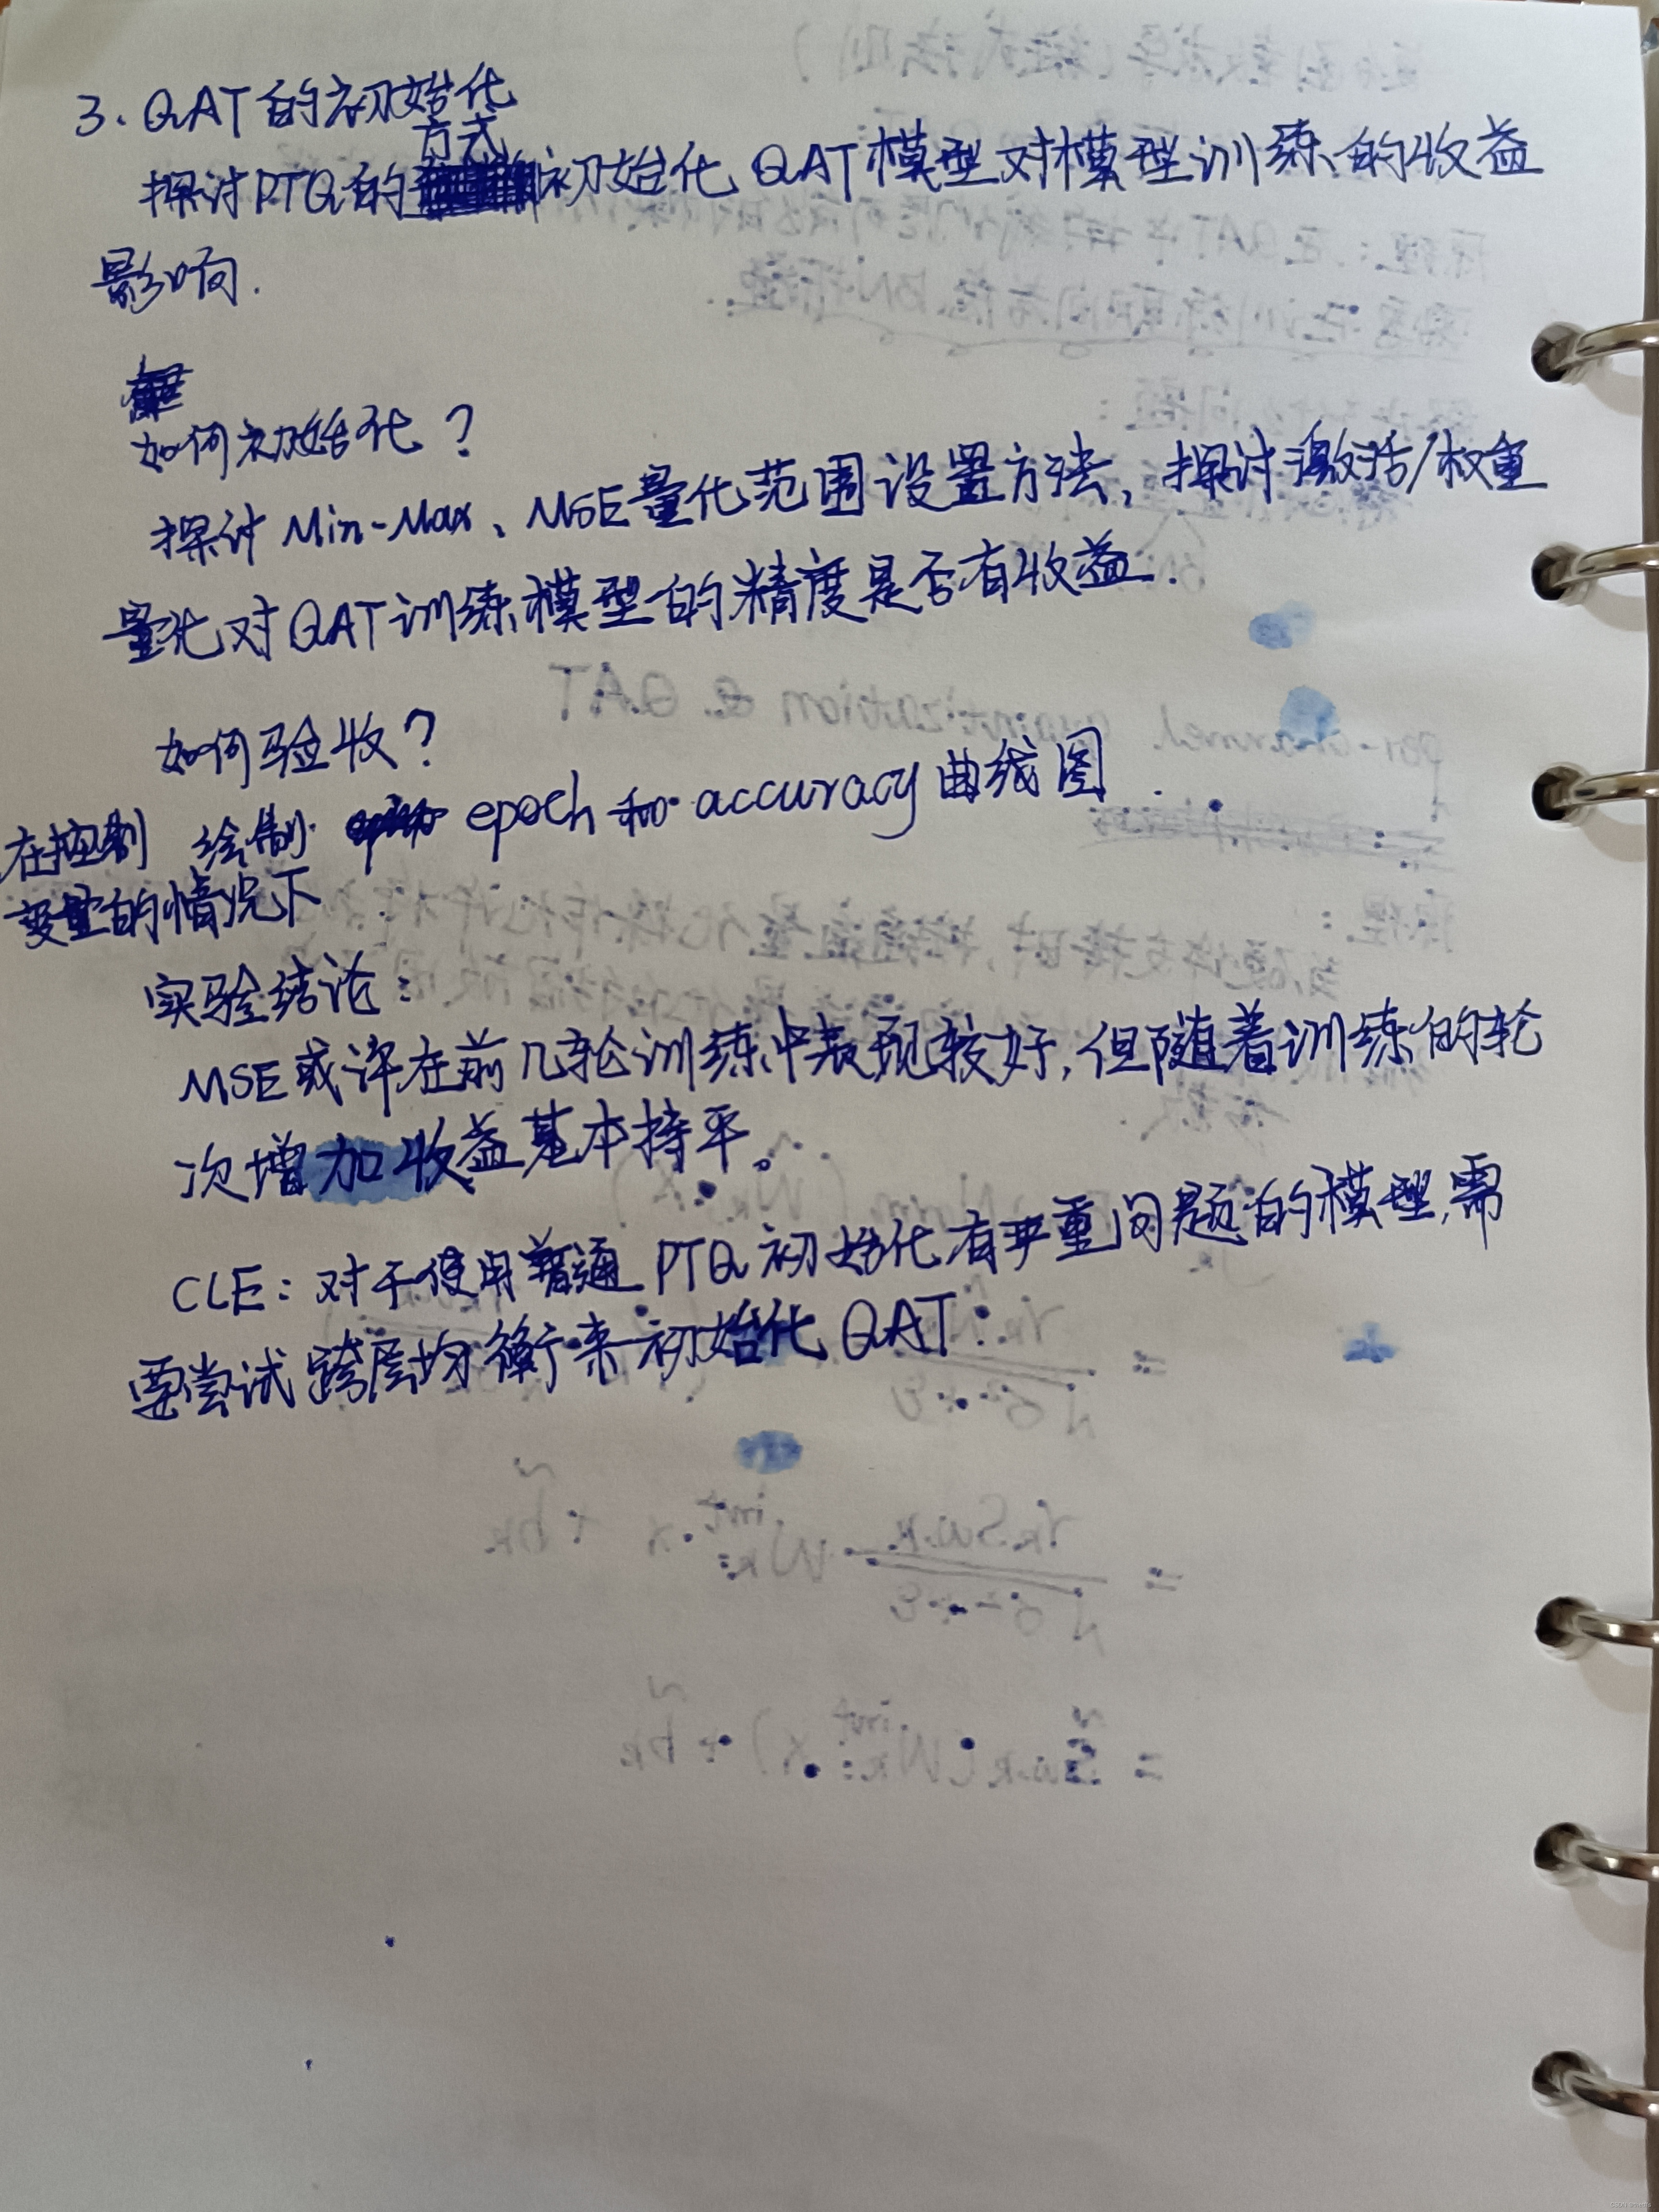 3、QAT的初始化
方式
探讨PTQ的初始化QAT模型对模型训练的收益
影响.
如何初始化？
探讨Min-Max、MSE量化范围设置方法，探讨激活/权重
量化对QAT训练模型的精度是否有收益.
如何验收？
绘制 epoch和accuracy曲线图.
在控制
变量的情况下
实验结论：
MSE或许在前几轮训练中表现较好，但随着训练的轮
次增加收益基本持平。
CLE：对于使用普通PTQ初始化有严重问题的模型，需
要尝试跨层均衡来初始化QAT.